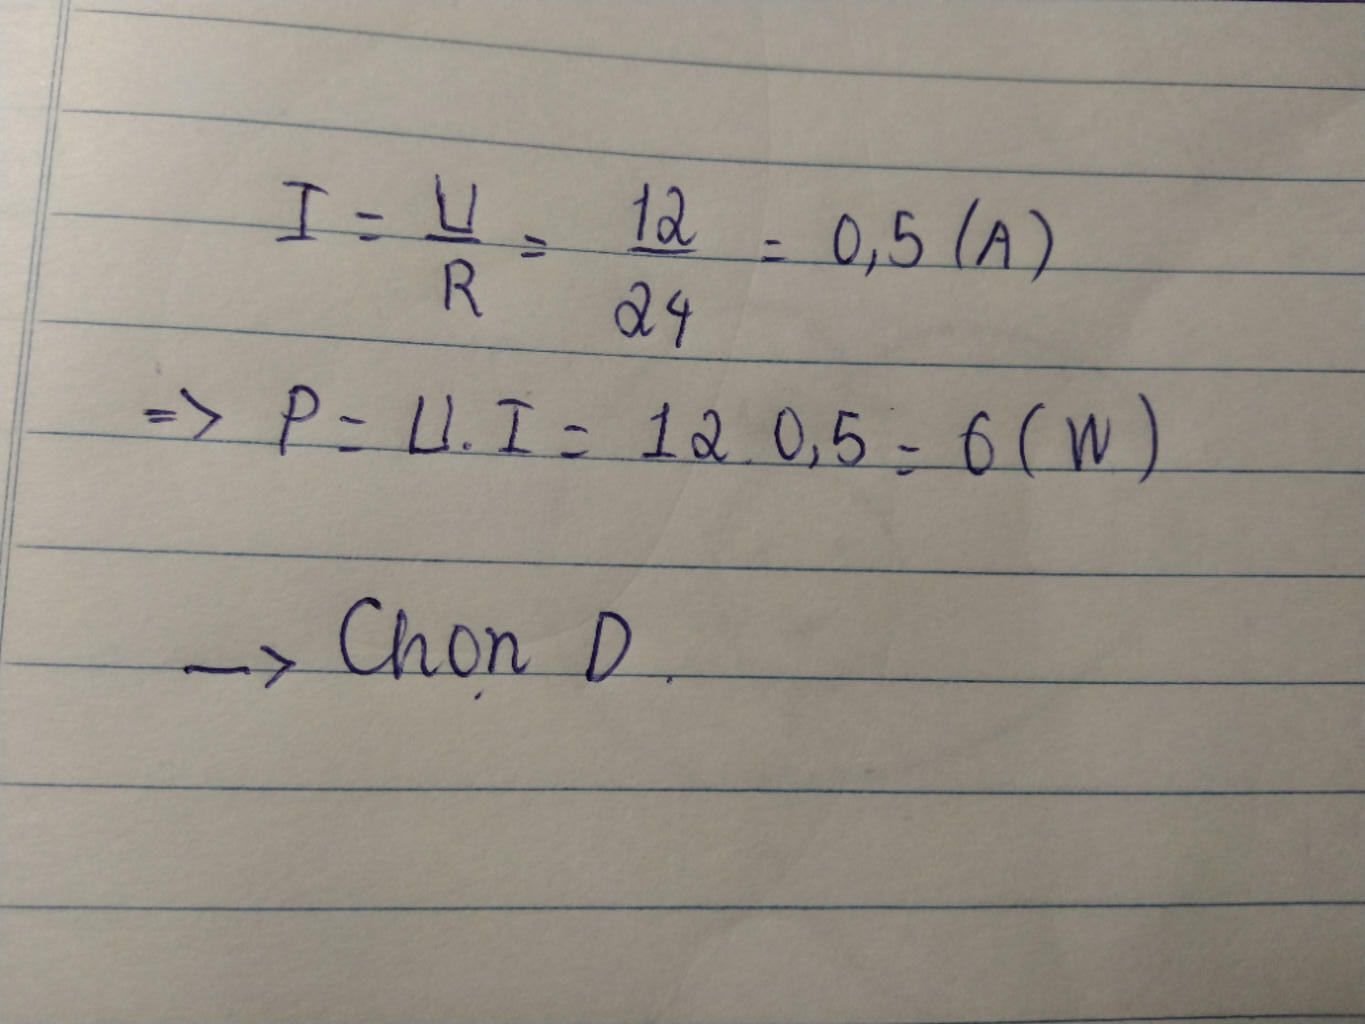 I = U/R = 12/24 = 0,5 (A)
=> P = U.I = 12.0,5 = 6 (W)
-> Chọn D.